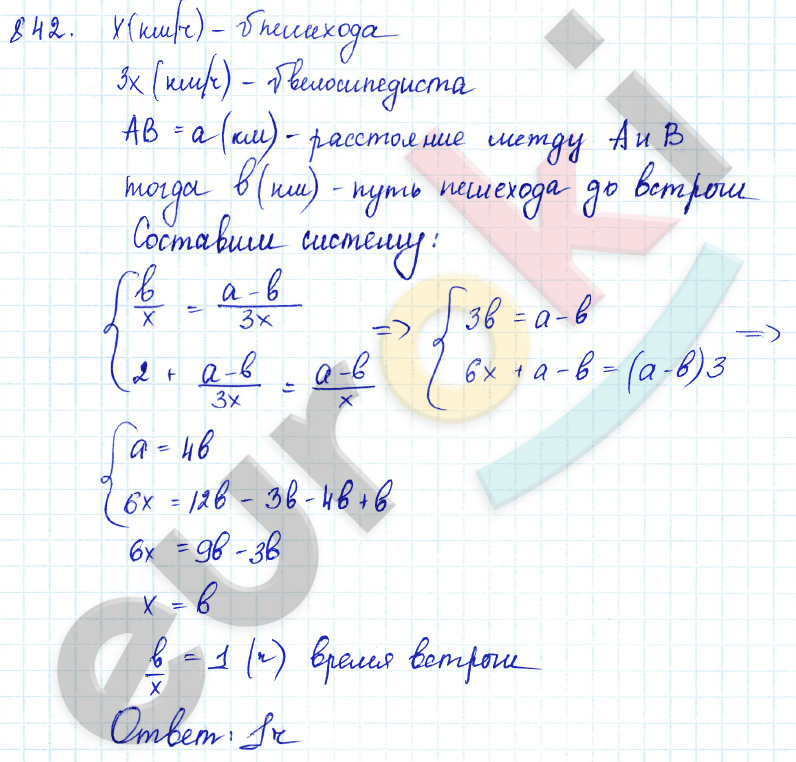 842. x (км/ч) – v пешехода
3x (км/ч) – v велосипедиста
AB = a (км) – расстояние между A и B
тогда b (км) – путь пешехода до встречи
Составим систему:
{ b/x = (a–b)/3x => { 3b = a–b =>
{ 2 + (a–b)/3x = (a–b)/x { 6x + a – b = (a–b)3
{ a = 4b
{ 6x = 12b – 3b – 4b + b
6x = 9b – 3b
x = b
b/x = 1 (ч) время встречи
Ответ: 1ч
euroki